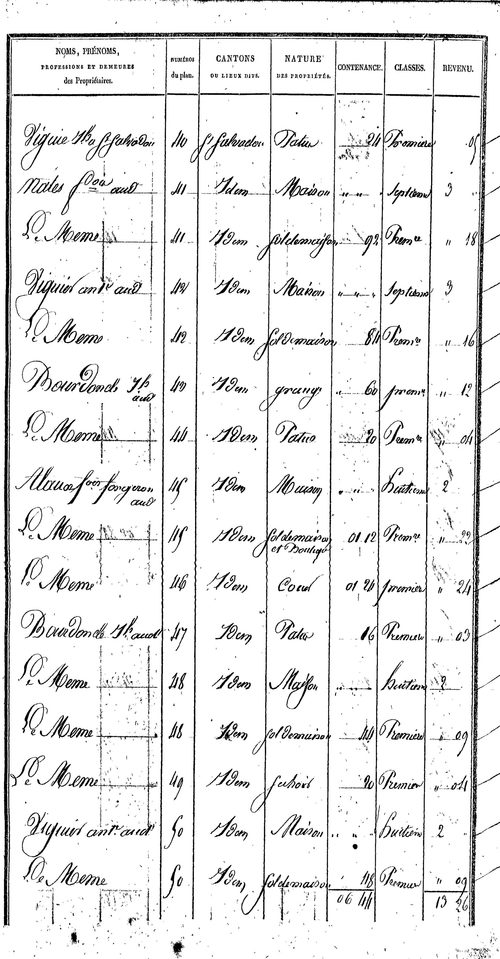 NOMS, PRÉNOMS, PROFESSIONS ET DEMEURES des Propriétaires. NUMÉROS du plan. CANTONS OU LIEUX DITS. NATURE DES PROPRIÉTÉS. CONTENANCE. CLASSES. REVENU.
Viguié St Salvadou 40 St Salvadou Patus 24 Première 05
aud 41 Idem Maison " " " Septième 3
Le Meme 41 Idem Sol de maison 92 Premre " 18
Viguier ante aud 42 Idem Maison " " " Septième 3
Le Meme 42 Idem Sol de maison 84 Premre " 16
Bourdoncle aud Idem grange " 60 premre " 12
Le Meme 44 Idem Patus 20 Premre " 04
forgeron aud 45 Idem Maison " " Huitieme 2
Le Meme 45 Idem Sol de maison et Boutique 01 12 Premre " 22
Le Meme 46 Idem Cour 01 24 premier " 24
Bourdoncle aud 47 Idem Patus 16 Premiere " 03
Le Meme 48 Idem Maison " " huitieme 2
Le Meme 48 Idem Sol de maison 44 Premiere " 09
Le Meme 49 Idem 20 Premier " 04
Viguier ante aud 50 Idem Maison " " " Huitieme 2
Le Meme 50 Idem Sol de maison " 48 Premier " 09
06 44 13 26